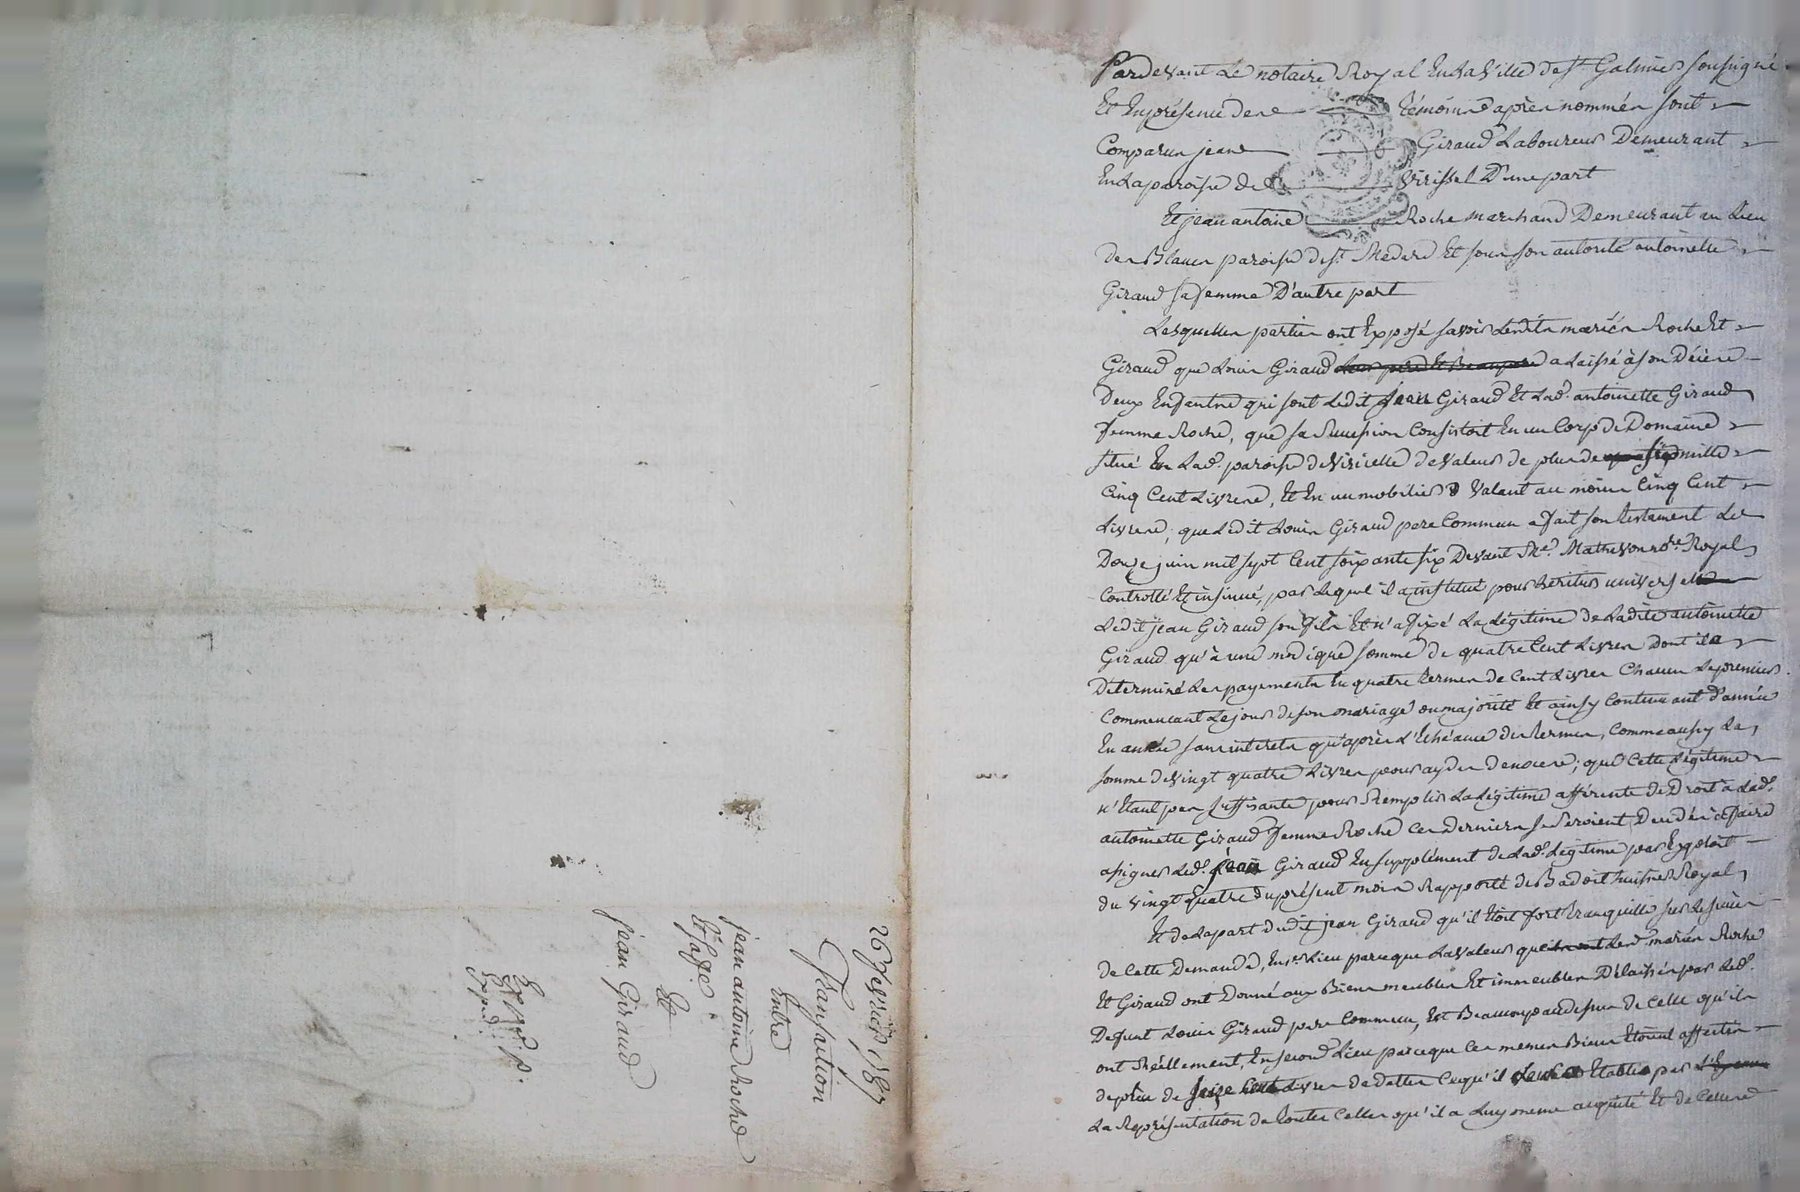 Pardevant Le notaire Royal En La Ville de St Galmier soussigné
Et En présence de témoins après nommés sont
Comparus jean Giraud Laboureur Demeurant
En La paroisse de Virissel D'une part
Et jean antoine Roche marchand Demeurant au Lieu
des Blancs paroisse de St Medard Et sous son autorité antoinette
Giraud sa femme D'autre part
Lesquelles parties ont Exposé savoir Lesdits mariés Roche Et
Giraud que Louis Giraud a Laissé à son Décès
Deux Enfants qui sont Ledit jean Giraud Et Lad. antoinette Giraud
femme Roche, que sa succession Consistoit En un Corps de Domaine
situé En Lad. paroisse de Viricelle de Valeur de plus de six mille
Cinq Cent Livres, Et En un mobilier Valant au moins Cinq Cent
Livres, que Ledit Louis Giraud pere Commun a fait son testament Le
Douze juin mil sept Cent soixante six Devant Me. Mathevon nore. Royal
Controllé Et insinué, par Lequel il a institué pour héritier universel
Ledit jean Giraud son fils Et n'a fixé La Légitime de Ladite antoinette
Giraud qu'à une modique somme de quatre Cent Livres Dont il a
Déterminé Les payements En quatre termes de Cent Livres Chacun Le premier
Commencant Le jour de son mariage ou majorité Et ainsy Continuant D'année
En année sans interets qu'après L'Echéance des termes, Comme aussy La
somme de vingt quatre Livres pour ayder de noces; que Cette Légitime
n'Etant pas suffisante pour Remplir La Légitime afférente de Droit à Lad.
antoinette Giraud femme Roche Ces Derniers se seroient Decidés à faire
assigner Led. jean Giraud En supplément de Lad. Légitime par Exploit
du vingt quatre du présent mois Rapporté de Badoit huissier Royal
Et de La part dudit jean Giraud qu'il Etoit fort tranquille sur Le succès
de Cette Demande, En 1er Lieu parceque La Valeur que Lesd. mariés Roche
Et Giraud ont Donné aux Biens meubles Et immeubles Délaissés par Led.
Defunt Louis Giraud pere Commun, Est Beaucoup au dessus de Celle qu'ils
ont Réellement, En second Lieu parceque Ces memes Biens Etoient affectés
de plus de seize Cent Livres de Dettes Ce qu'il Etablir par
La Représentation de toutes Celles qu'il a Luy meme acquité Et de Celles
26 fevrier 1787
Transaction
Entre
jean antoine Roche
Et sa fe.
Et
jean Giraud